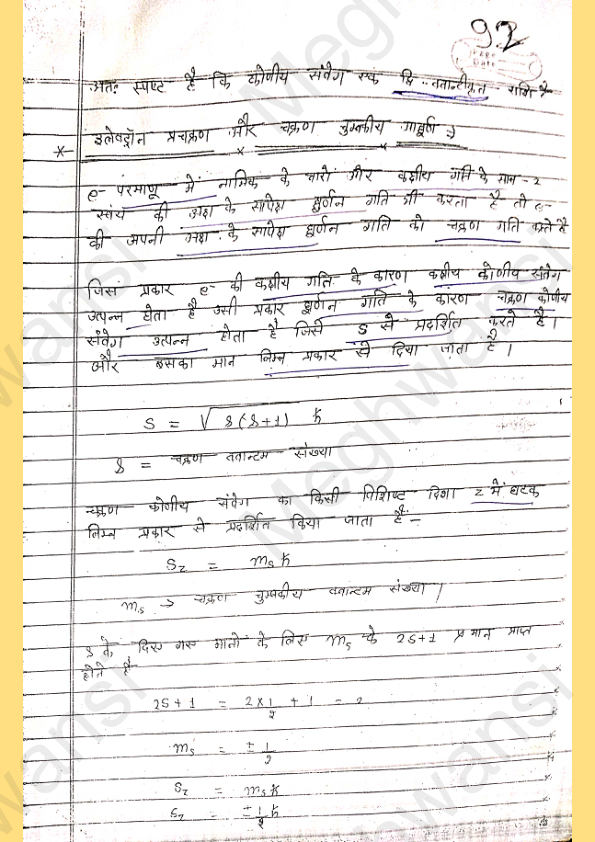 92
PAGE
DATE
अतः स्पष्ट है कि कोणीय संवेग एक क्वान्टीकृत राशि है
* इलेक्ट्रॉन प्रचक्रण और चक्रण चुम्बकीय आघूर्ण :-
e- परमाणु में नाभिक के चारो और कक्षीय गति के साथ - 2
स्वंय की अक्ष के सापेक्ष घुर्णन गति भी करता है तो e-
की अपनी अक्ष के सापेक्ष घुर्णन गति को चक्रण गति कहते है
जिस प्रकार e- की कक्षीय गति के कारण कक्षीय कोणीय संवेग
उत्पन्न होता है उसी प्रकार घुर्णन गति के कारण चक्रण कोणीय
संवेग उत्पन्न होता है जिसे S से प्रदर्शित करते है।
और इसका मान निम्न प्रकार से दिया जाता है।
S = √s(s+1) ℏ
s = चक्रण क्वान्टम संख्या
चक्रण कोणीय संवेग का किसी विशिष्ट दिशा z में घटक
निम्न प्रकार से प्रदर्शित किया जाता है -
Sz = ms ℏ
ms → चक्रण चुम्बकीय क्वान्टम संख्या।
s के दिए गए मानो के लिए ms के 2s+1 मान प्राप्त
होते है
2s+1 = 2×1/2 + 1 = 2
ms = ±1/2
Sz = msℏ
Sz = ±1/2 ℏ
Meghwansi